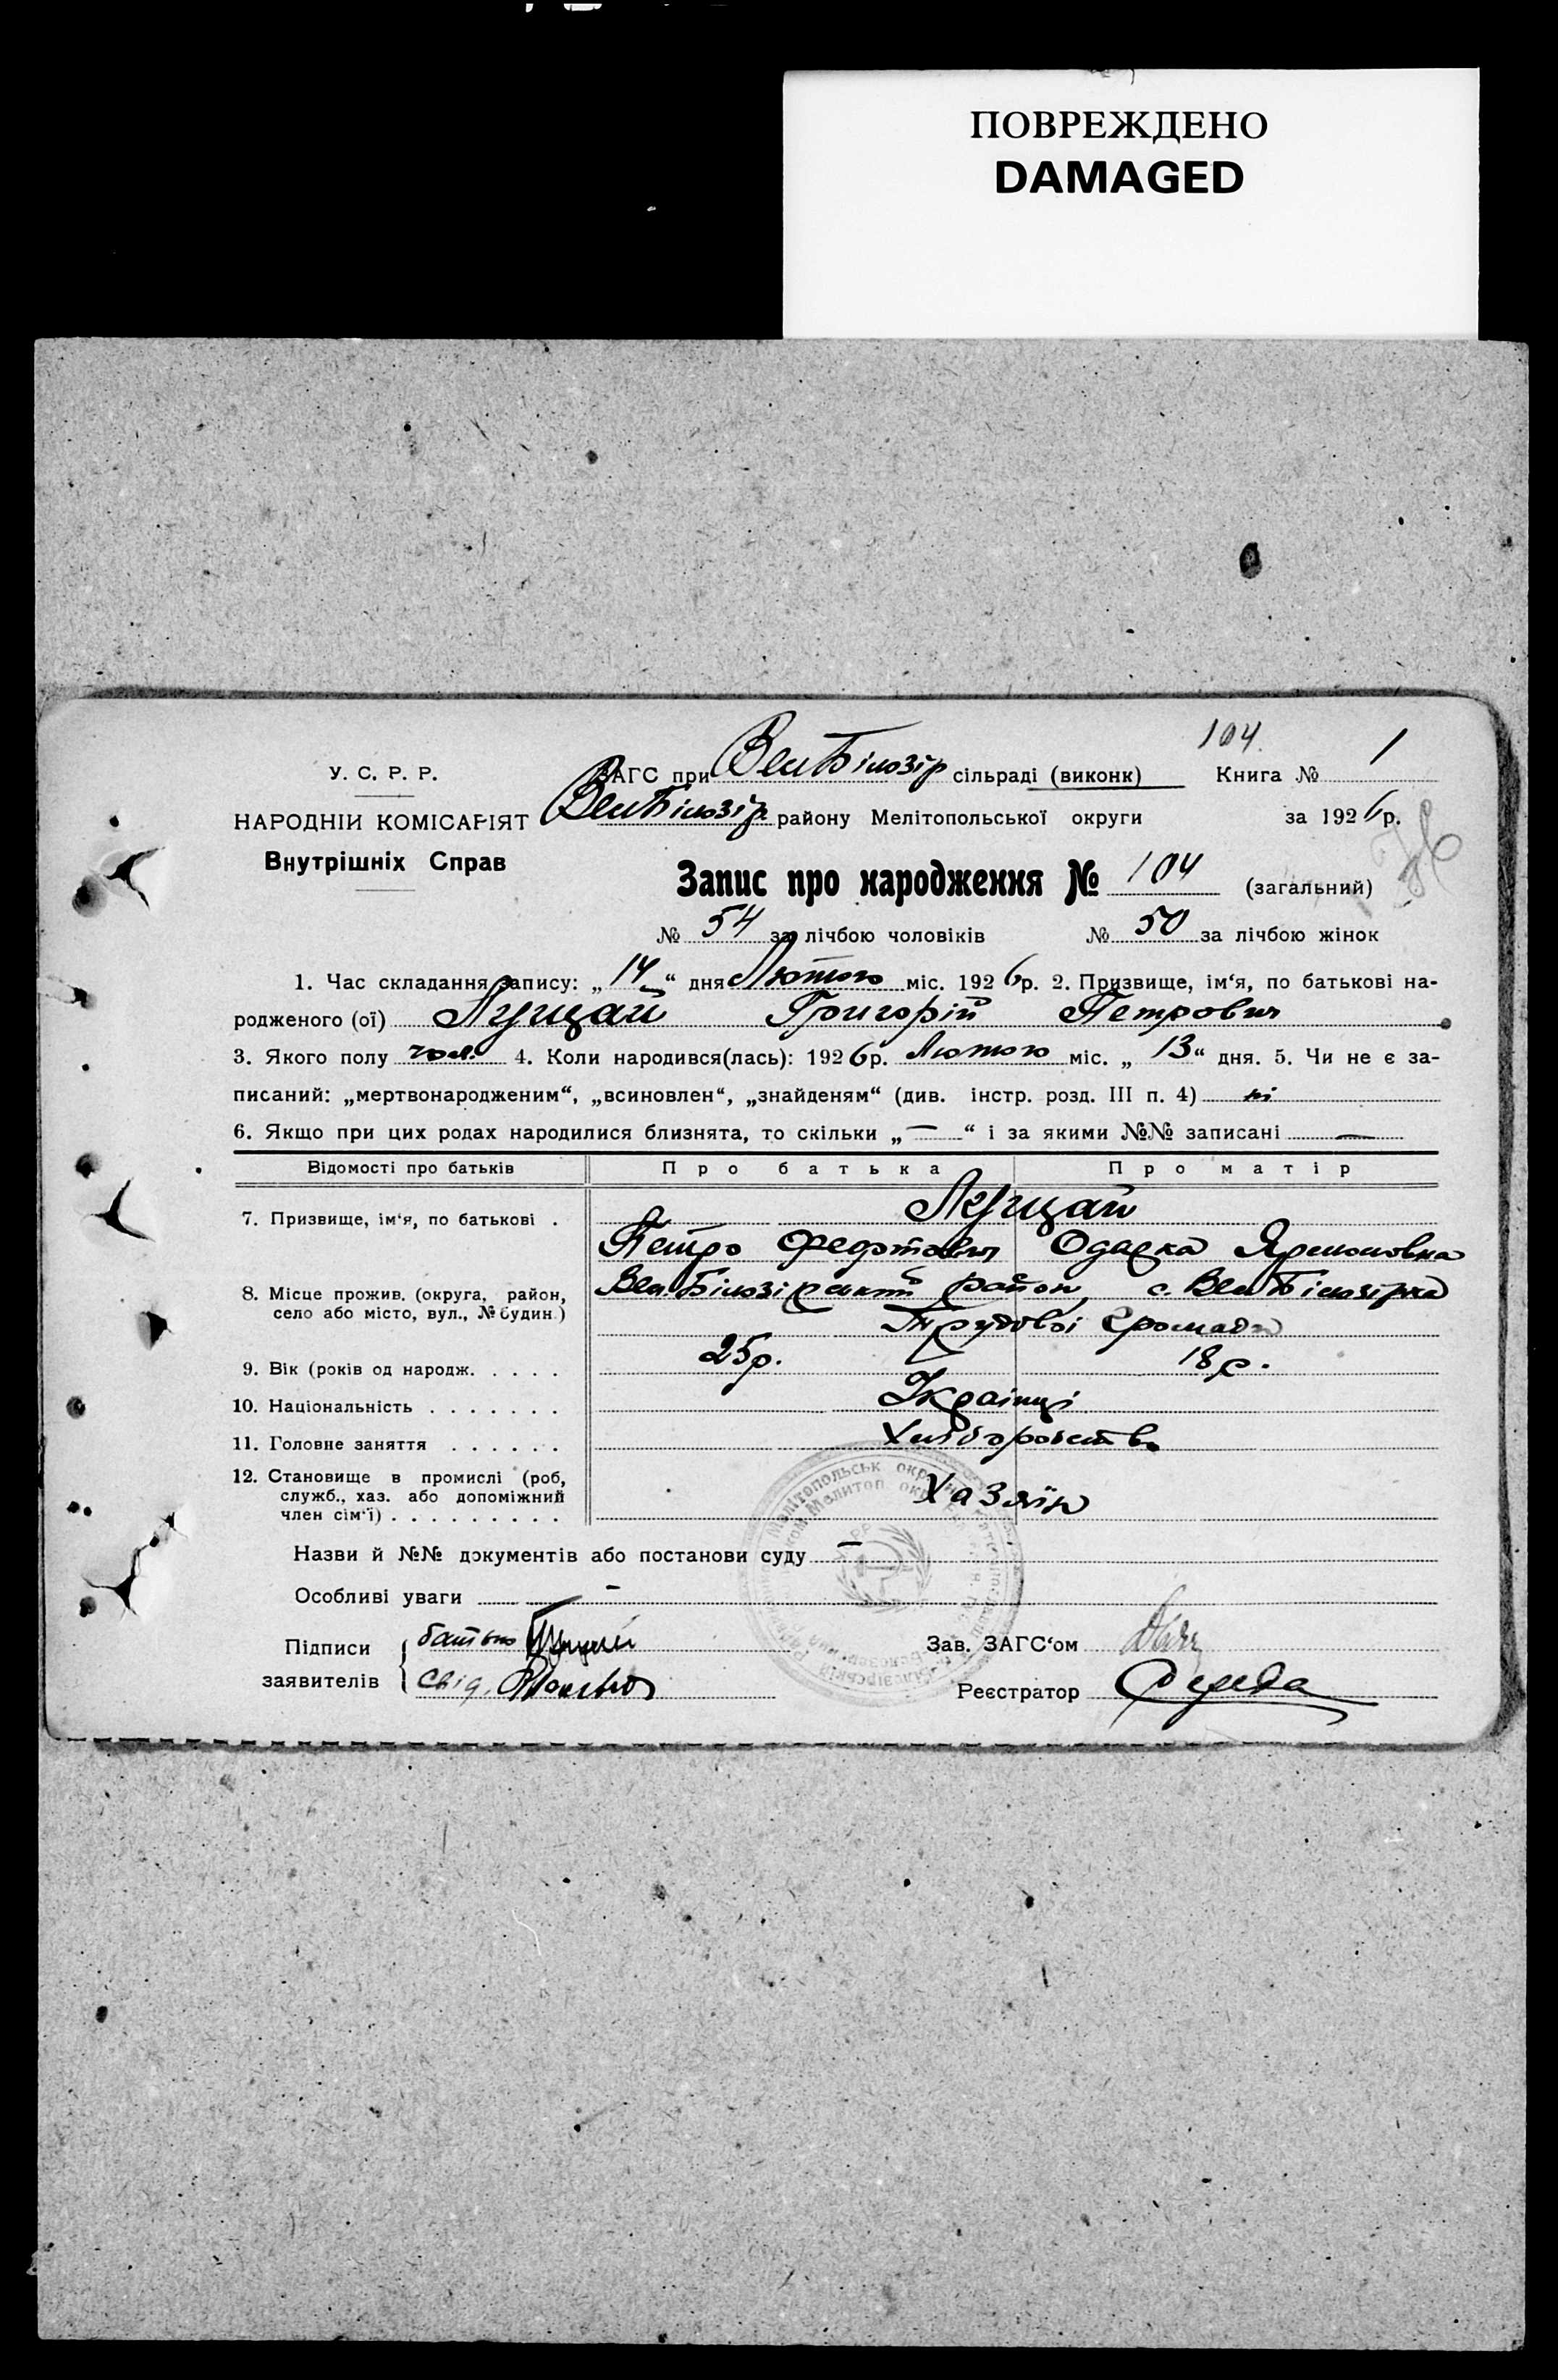 ПОВРЕЖДЕНО
DAMAGED
104.
У. С. Р. Р.
ЗАГС при ВелБілозір сільраді (виконк) Книга № 1
НАРОДНІЙ КОМІСАРІЯТ ВелБілозір. району Мелітопольської округи за 1926 р.
Внутрішніх Справ
Запис про народження № 104 (загальний)
№ 54 за лічбою чоловіків № 50 за лічбою жінок
1. Час складання запису: „14“ дня Лютого міс. 1926 р. 2. Призвище, ім‘я, по батькові на-
родженого (ої) Луцай Григорій Петрович
3. Якого полу чол. 4. Коли народився(лась): 1926 р. Лютого міс. „13“ дня. 5. Чи не є за-
писаний: „мертвонародженим“, „всиновлен“, „знайденям“ (див. інстр. розд. III п. 4) ні
6. Якщо при цих родах народилися близнята, то скільки „—“ і за якими №№ записані —
Відомості про батьків Про батька Про матір
Луцай
7. Призвище, ім‘я, по батькові .
Петро Федотович Одарка
ВелБілозірський район, с. ВелБілозірка
8. Місце прожив. (округа, район,
село або місто, вул., № будин.)
Трудової громади
9. Вік (років од народж. . . . . 25р. 18р.
10. Національність . . . . . . . Українці
11. Головне заняття . . . . . . Хліборобство
12. Становище в промислі (роб,
служб., хаз. або допоміжний
член сім‘ї) . . . . . . . . . Хазяїн
Назви й №№ документів або постанови суду —
Особливі уваги -
Підписи
заявителів
батько
свід.
Зав. ЗАГС‘ом
Реєстратор Середа